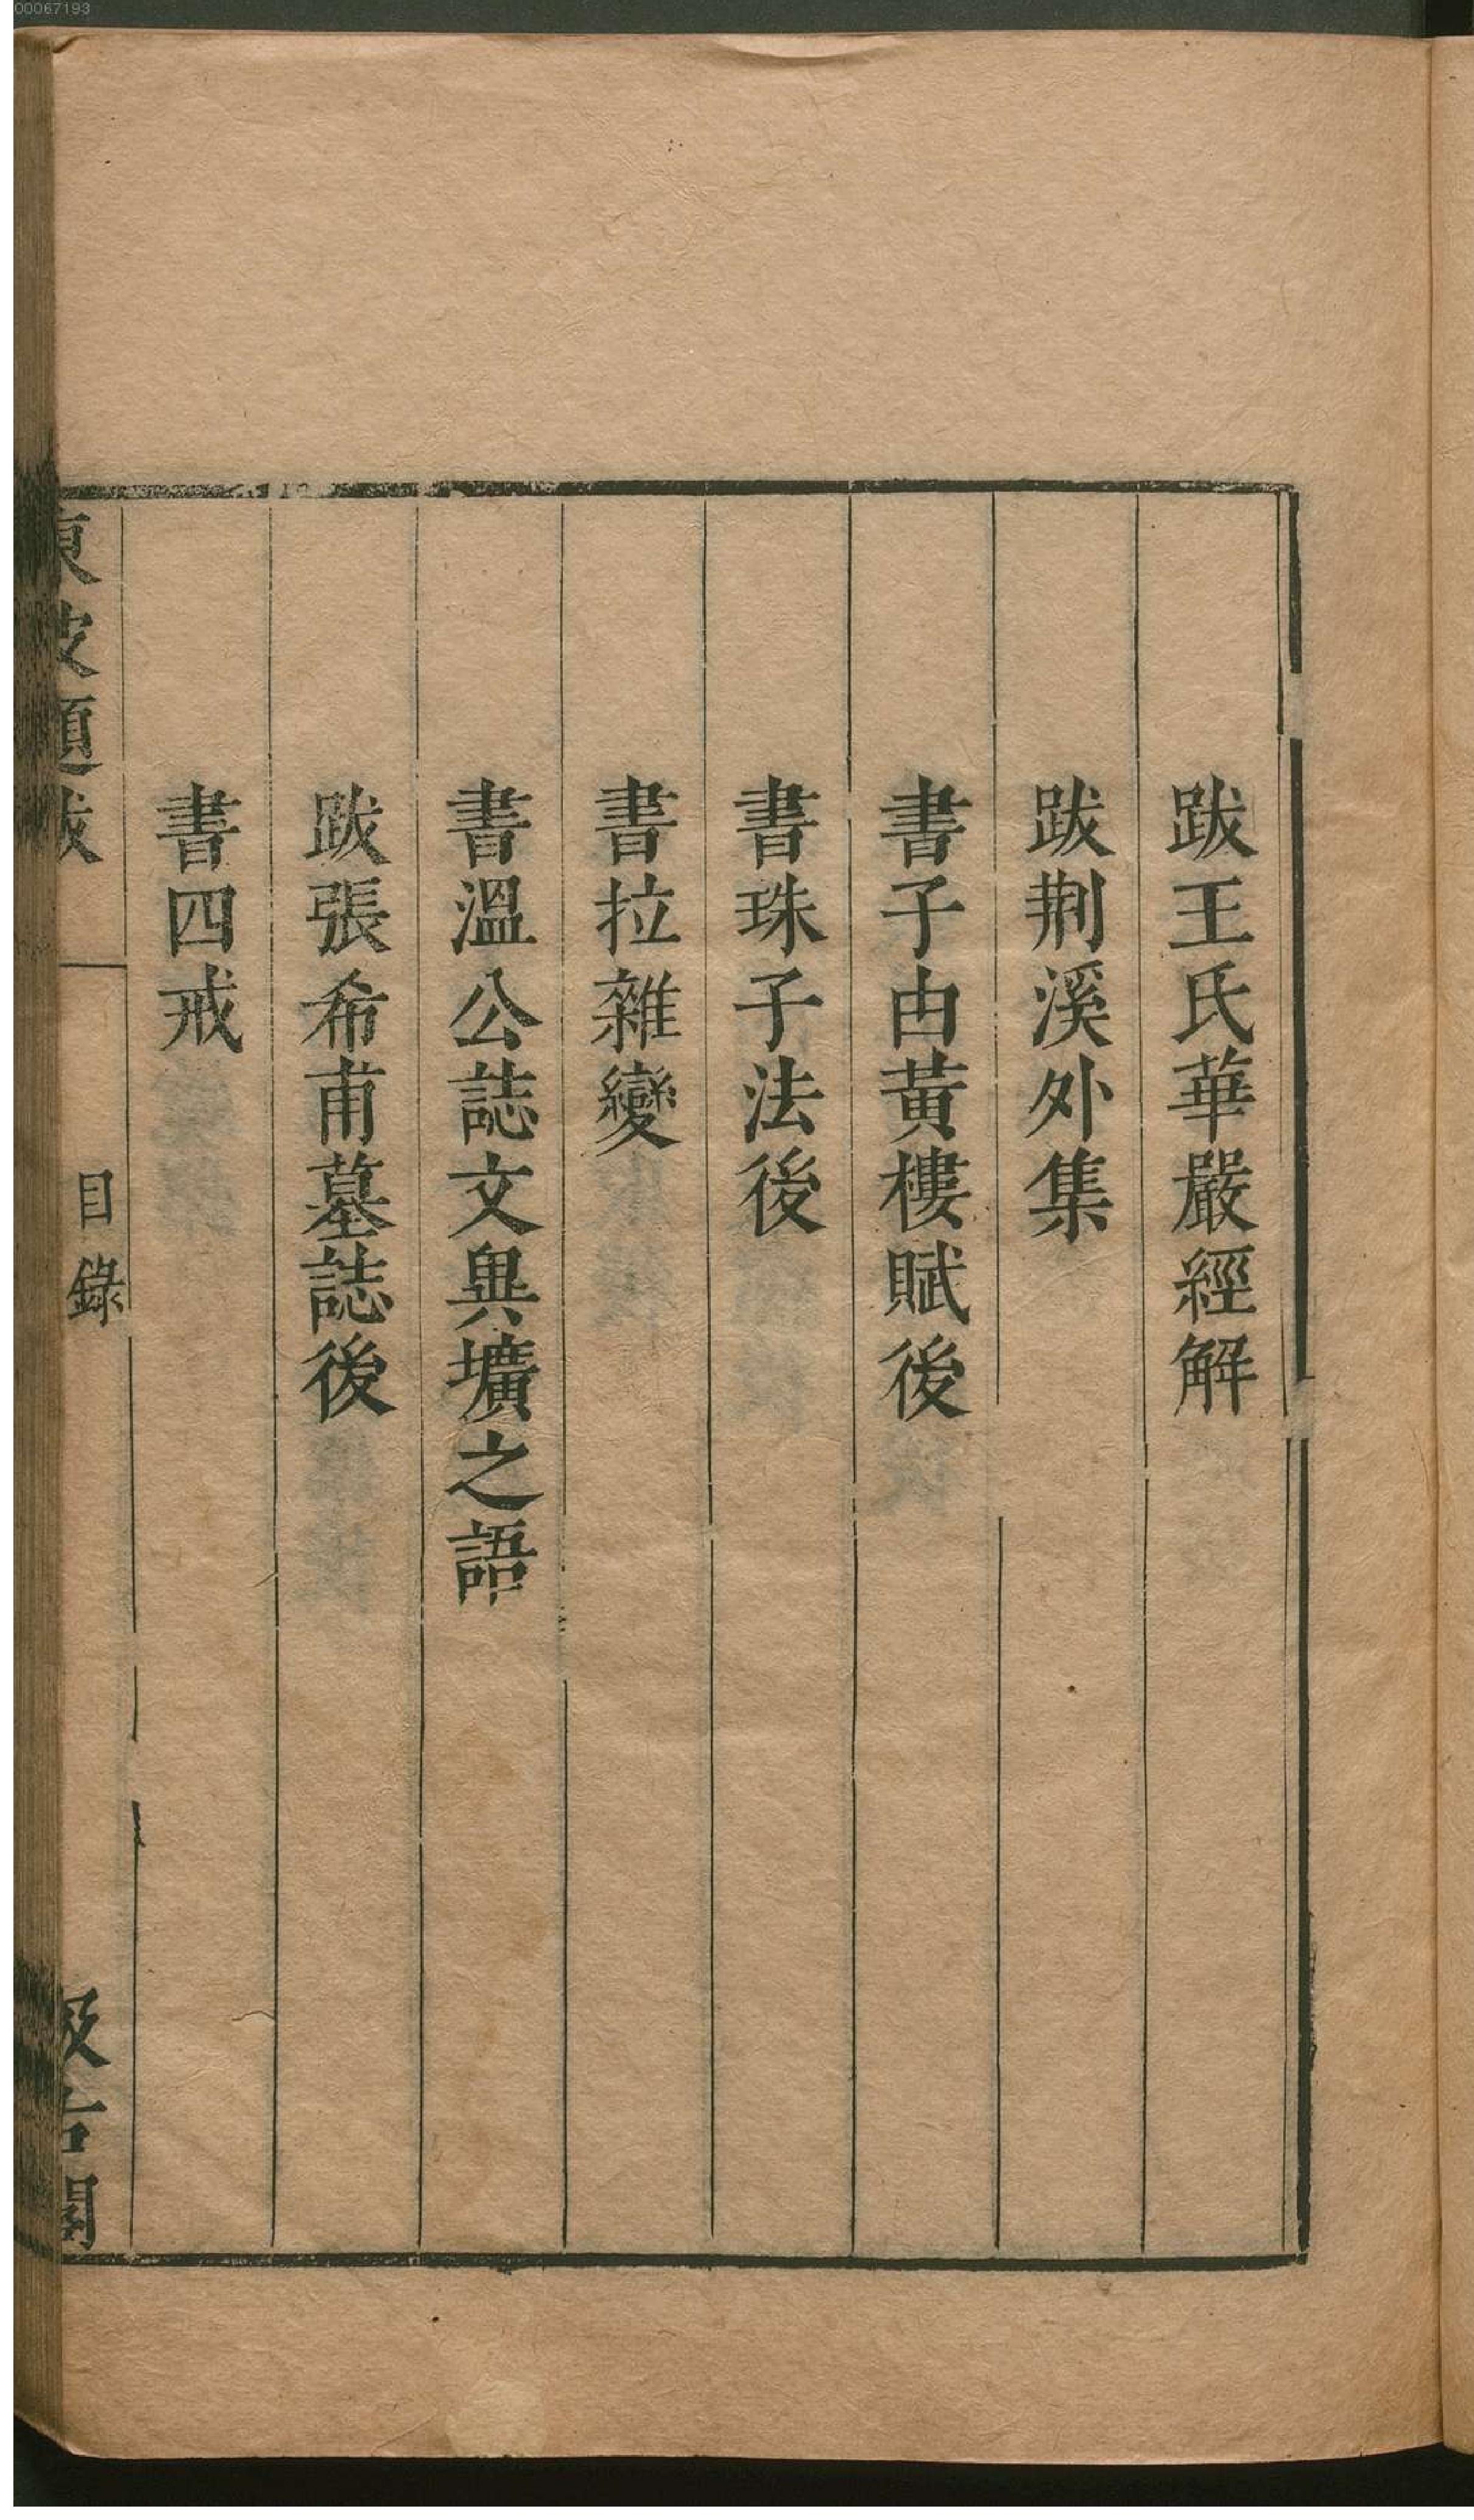 跋王氏華嚴經解
跋荆溪外集
書子由黃樓賦後
書珠子法後
書拉雜變
書溫公誌文異壙之語
跋張希甫墓誌後
書四戒
東坡題跋
目錄
汲古閣
00067193